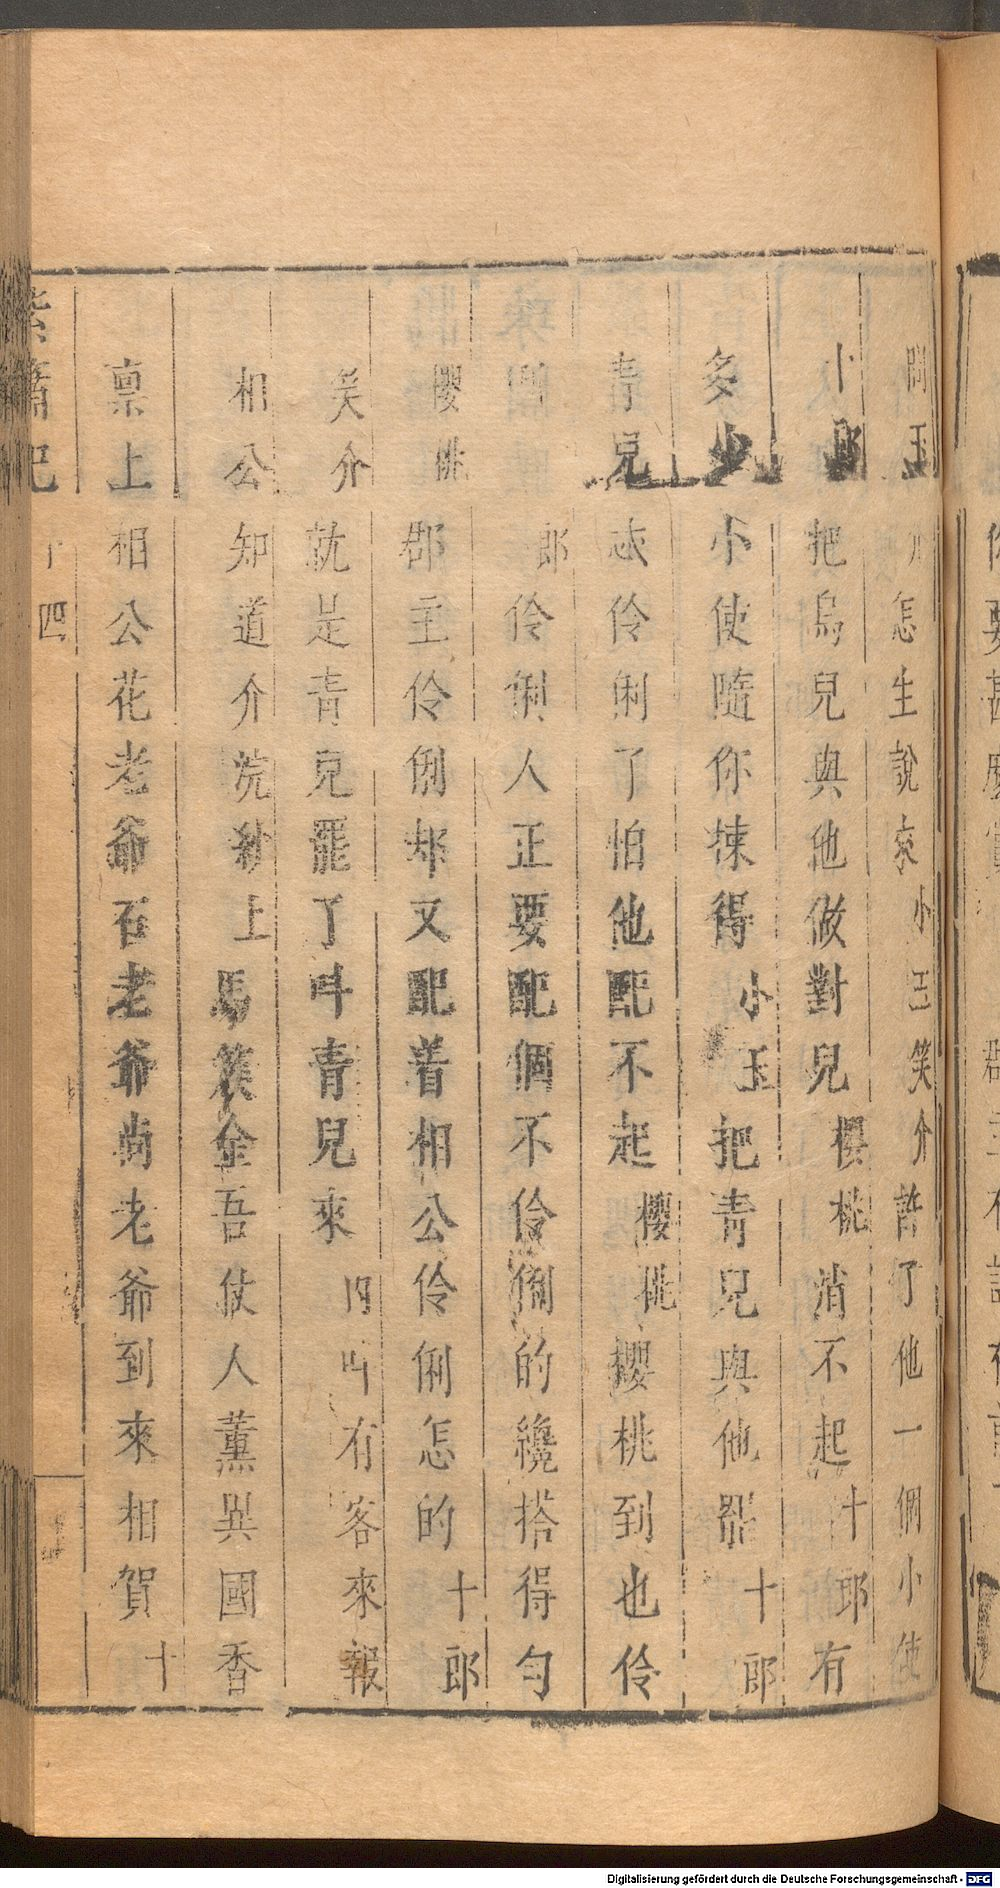 問玉　怎生說來小玉笑介許了他一個小使
小郎把烏兒與他做對兒櫻桃消不起十郎有
多少小使隨你揀得小玉把青兒與他罷十郎
青兒忒伶俐了怕他配不起櫻桃櫻桃到也伶
俐　郎伶俐人正要配個不伶俐的纔搭得勻
櫻桃郡主伶俐却又配着相公伶俐怎的十郎
笑介就是青兒罷了叫青兒來內叫有客來報
相公知道介浣紗上馬簇金吾仗人薰異國香
稟上相公花老爺石老爺尚老爺到來相賀十
紫簫記　十四
Digitalisierung gefördert durch die Deutsche Forschungsgemeinschaft - DFG